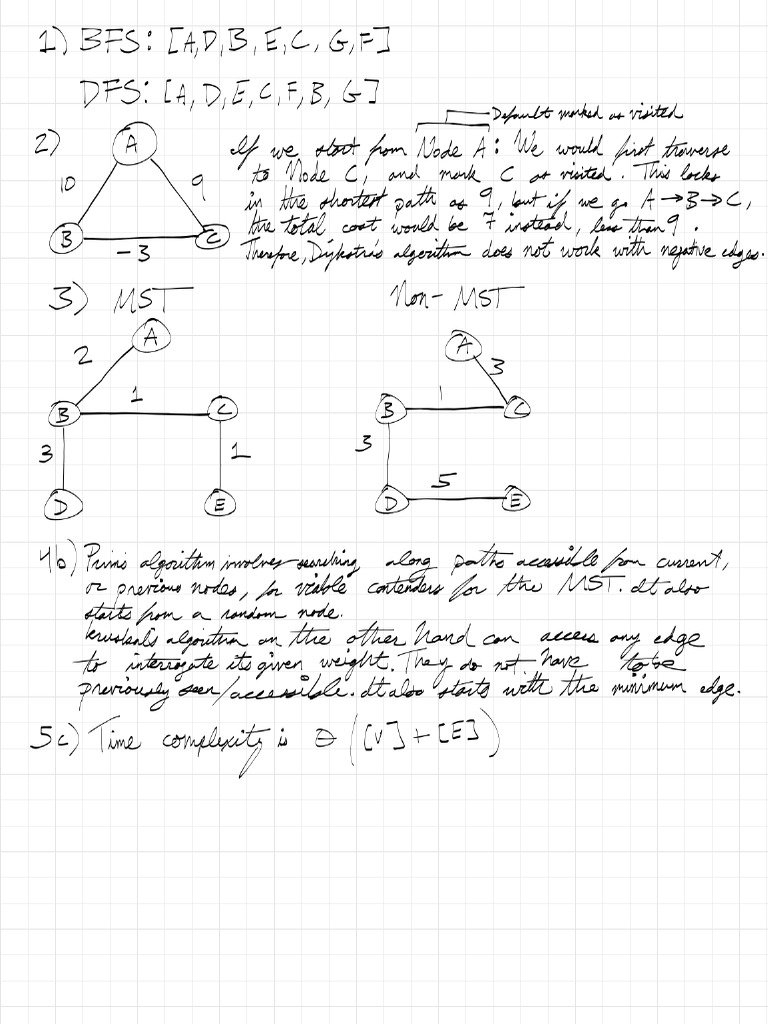 1) BFS: [A,D,B,E,C,G,F]
DFS: [A,D,E,C,F,B,G]
Default marked as visited
2) If we start from Node A: We would first traverse
to Node C, and mark C as visited. This locks
in the shortest path as 9, but if we go A→B→C,
the total cost would be 7 instead, less than 9.
Therefore, Dijkstra's algorithm does not work with negative edges.
A
10
9
B
C
-3
3) MST
Non-MST
A
2
1
B
C
3
1
D
E
A
3
B
1
C
3
5
D
E
4b) Prims algorithm involves searching along paths accessible from current,
or previous nodes, for viable contenders for the MST. It also
starts from a random node.
kruskals algorithm on the other hand can access any edge
to interrogate its given weight. They do not have to be
previously seen/accessible. It also starts with the minimum edge.
5c) Time complexity is Θ([V]+[E])